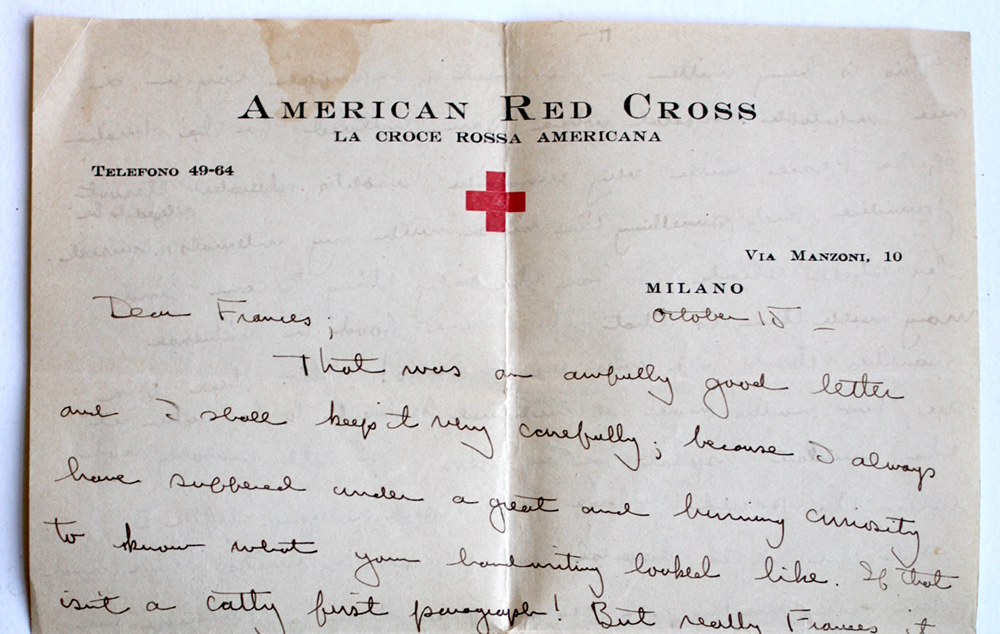 AMERICAN RED CROSS
LA CROCE ROSSA AMERICANA
TELEFONO 49-64
VIA MANZONI, 10
MILANO
October 15 —
Dear Frances;
That was an awfully good letter
and I shall keep it very carefully; because I always
have suffered under a great and burning curiosity
to know what your handwriting looked like. If that
isn't a catty first paragraph! But really Frances it